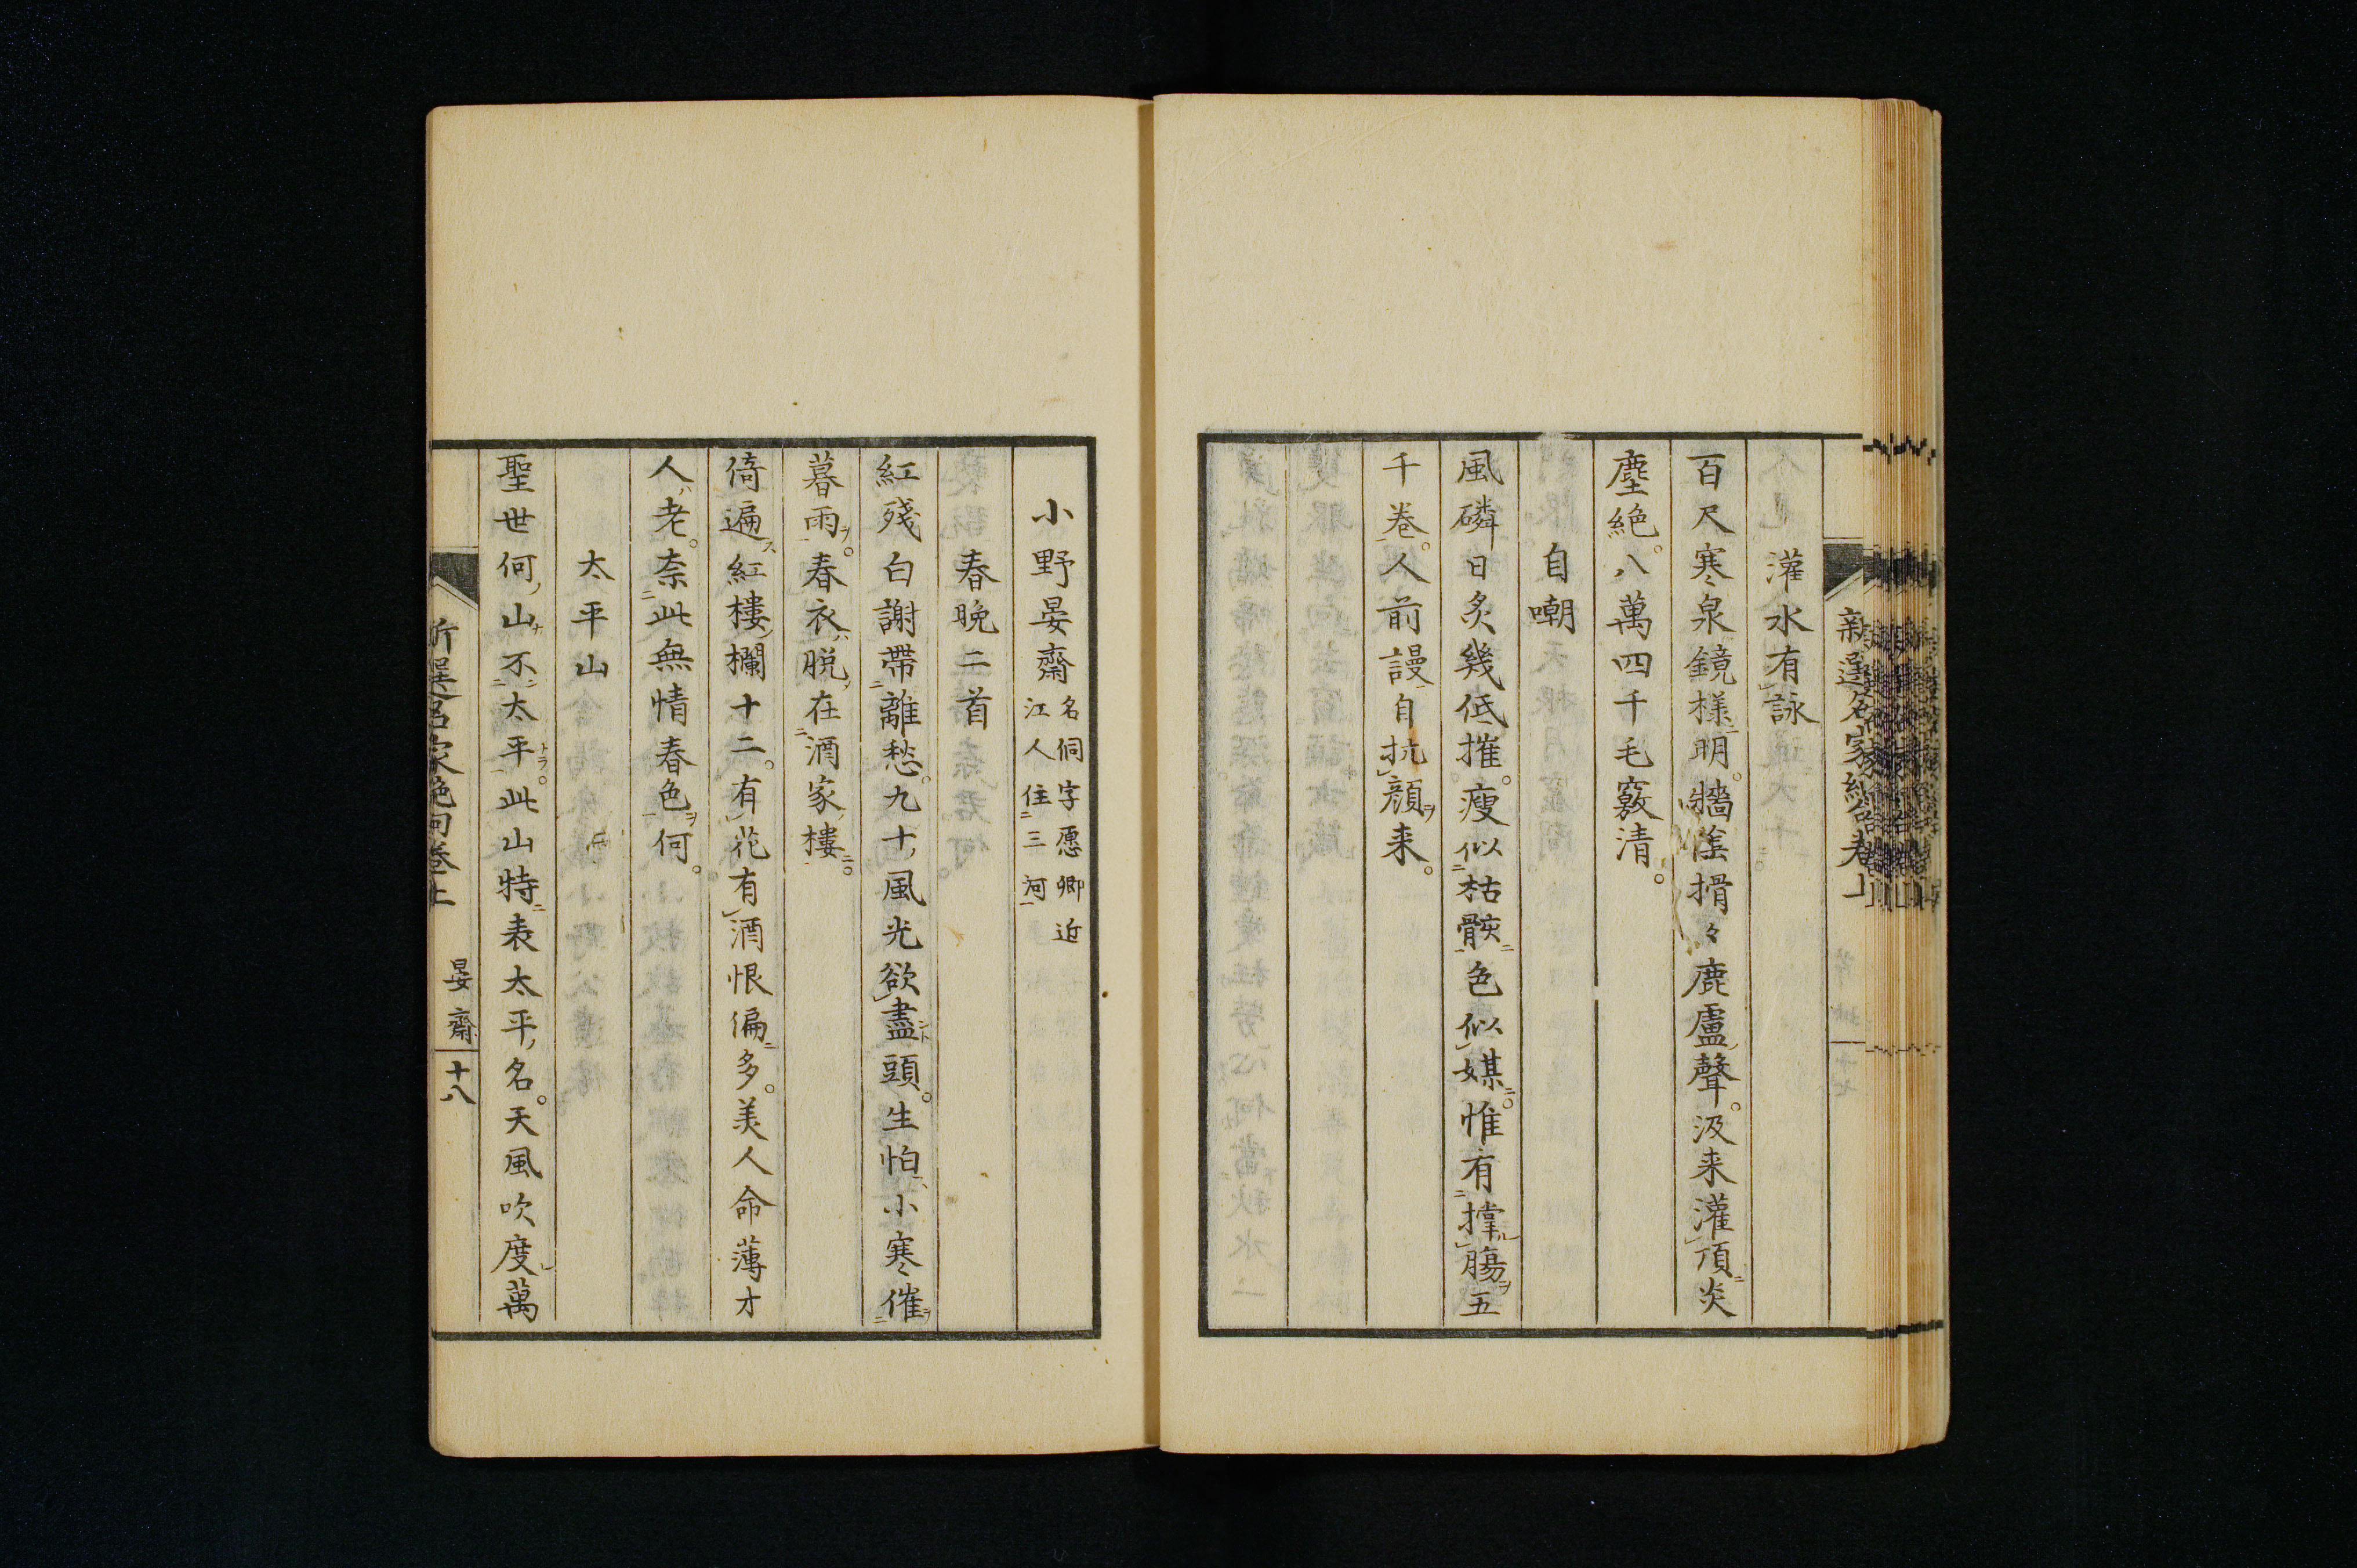 灌水有詠
百尺寒泉鏡樣明。牆陰搰々鹿盧聲。汲来灌頂炎
塵絶。八萬四千毛竅清。
自嘲
風磷日炙幾低摧。瘦似枯骸色似媒。惟有撑腸五
千卷。人前謾自抗顔来。
小野晏齋
名侗字愿卿近
江人住三河
春晚二首
紅殘白謝帶離愁。九十風光欲盡頭。生怕小寒催
暮雨。春衣脱在酒家樓。
倚遍紅樓欄十二。有花有酒恨偏多。美人命薄才
人老。奈此無情春色何。
太平山
聖世何山不太平。此山特表太平名。天風吹度萬
新選名家絶句卷上
晏齋
十八